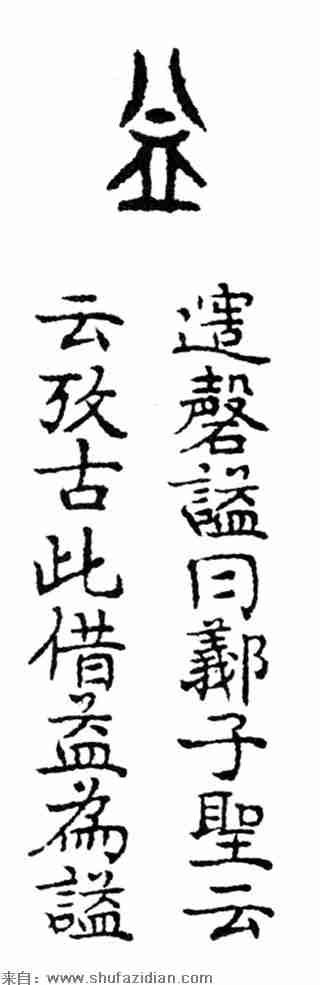 磬謚曰子聖云
云攷古此借益為謚
来自：www.shufazidian.com